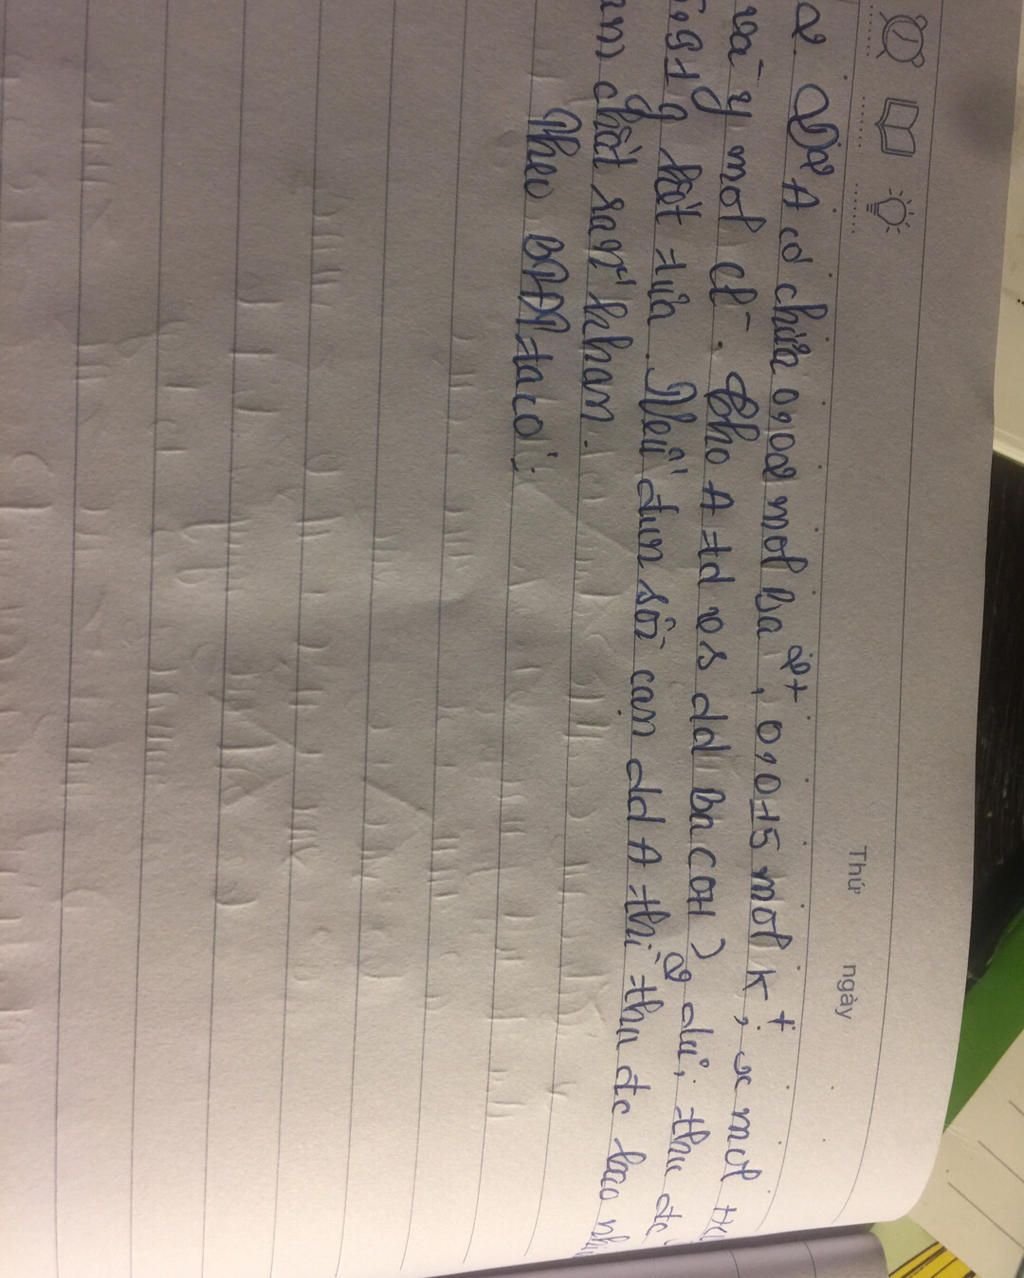 Thứ
ngày
2. Dd A có chứa 0,02 mol Ba²⁺, 0,015 mol K⁺; x mol
và y mol Cl⁻. Cho A td vs dd Ba(OH)₂ dư, thu đc
g kết tủa. Nếu đun sôi cạn dd A thì thu đc bao
chất rắn khan.
Theo BTĐT ta có: